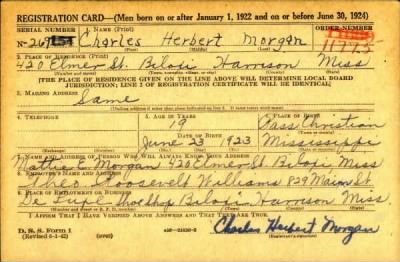 REGISTRATION CARD—(Men born on or after January 1, 1922 and on or before June 30, 1924)
SERIAL NUMBER 1. NAME (Print) ORDER NUMBER
Charles Herbert Morgan 11775
No 267
(First) (Middle) (Last)
2. PLACE OF RESIDENCE (Print)
420 Elmer St. Biloxi Harrison Miss
(Number and street) (Town, township, village, or city) (County) (State)
[THE PLACE OF RESIDENCE GIVEN ON THE LINE ABOVE WILL DETERMINE LOCAL BOARD
JURISDICTION; LINE 2 OF REGISTRATION CERTIFICATE WILL BE IDENTICAL]
3. MAILING ADDRESS
Same
4. TELEPHONE 5. AGE IN YEARS 6. PLACE OF BIRTH
19 Pass Christian
DATE OF BIRTH
June 23 1923 Mississippi
7. NAME AND ADDRESS OF PERSON WHO WILL ALWAYS KNOW YOUR ADDRESS
Mattie E Morgan 420 Elmer St. Biloxi Miss
8. EMPLOYER'S NAME AND ADDRESS
Theo Roosevelt Williams 829 Main St
9. PLACE OF EMPLOYMENT OR BUSINESS
Shoe Shop Biloxi Harrison Miss.
I AFFIRM THAT I HAVE VERIFIED ABOVE ANSWERS AND THAT THEY ARE TRUE.
D. S. S. Form 1
(Revised 6-1-42)
Charles Herbert Morgan